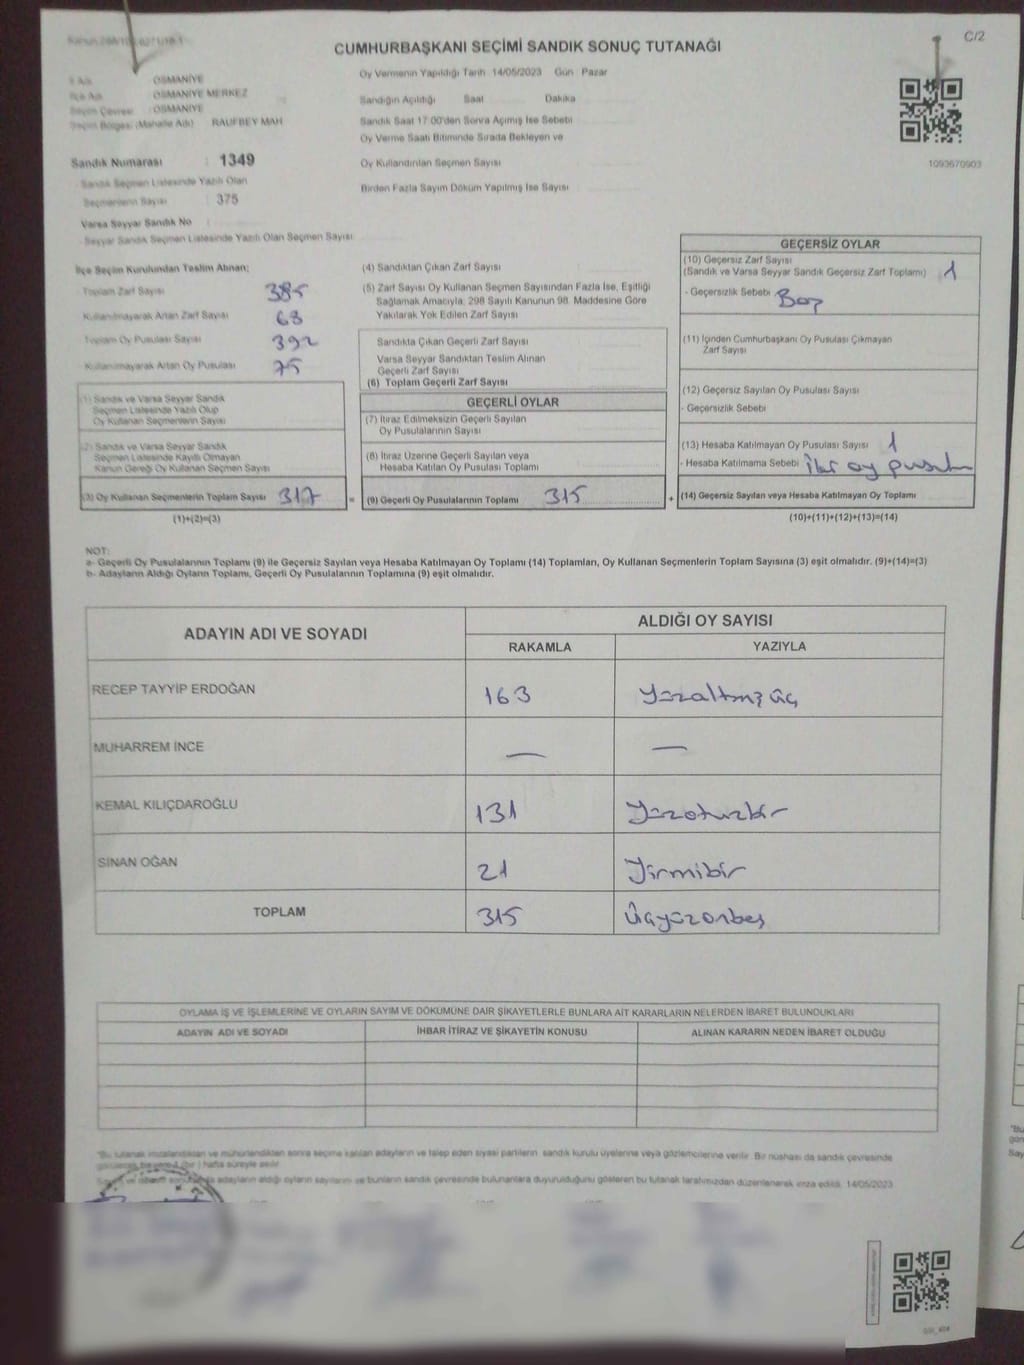 C/2
CUMHURBAŞKANI SEÇİMİ SANDIK SONUÇ TUTANAĞI
Oy Vermenin Yapıldığı Tarih 14/05/2023 Gün Pazar
İl Adı OSMANİYE
İlçe Adı OSMANİYE MERKEZ
Seçim Çevresi : OSMANİYE
Seçim Bölgesi (Mahalle Adı) RAUFBEY MAH
Sandık Numarası : 1349
Sandık Seçmen Listesinde Yazılı Olan
Seçmenlerin Sayısı : 375
Varsa Seyyar Sandık No
Seyyar Sandık Seçmen Listesinde Yazılı Olan Seçmen Sayısı
Sandığın Açıldığı Saat Dakika
Sandık Saat 17:00'den Sonra Açımış İse Sebebi
Oy Verme Saati Bitiminde Sırada Bekleyen ve
Oy Kullandırılan Seçmen Sayısı
Birden Fazla Sayım Döküm Yapılmış İse Sayısı
1093670903
İlçe Seçim Kurulundan Teslim Alınan;
Toplam Zarf Sayısı 385
Kullanılmayarak Artan Zarf Sayısı 68
Toplam Oy Pusulası Sayısı 392
Kullanılmayarak Artan Oy Pusulası 75
(1) Sandık ve Varsa Seyyar Sandık
Seçmen Listesinde Yazılı Olup
Oy Kullanan Seçmenlerin Sayısı
(2) Sandık ve Varsa Seyyar Sandık
Seçmen Listesinde Kayıtlı Olmayan
Kanun Gereği Oy Kullanan Seçmen Sayısı
(3) Oy Kullanan Seçmenlerin Toplam Sayısı 317 =
(1)+(2)=(3)
(4) Sandıktan Çıkan Zarf Sayısı
(5) Zarf Sayısı Oy Kullanan Seçmen Sayısından Fazla İse, Eşitliği
Sağlamak Amacıyla, 298 Sayılı Kanunun 98. Maddesine Göre
Yakılarak Yok Edilen Zarf Sayısı
Sandıkta Çıkan Geçerli Zarf Sayısı
Varsa Seyyar Sandıktan Teslim Alınan
Geçerli Zarf Sayısı
(6) Toplam Geçerli Zarf Sayısı
GEÇERLİ OYLAR
(7) İtiraz Edilmeksizin Geçerli Sayılan
Oy Pusulalarının Sayısı
(8) İtiraz Üzerine Geçerli Sayılan veya
Hesaba Katılan Oy Pusulası Toplamı
(9) Geçerli Oy Pusulalarının Toplamı 315 +
GEÇERSİZ OYLAR
(10) Geçersiz Zarf Sayısı
(Sandık ve Varsa Seyyar Sandık Geçersiz Zarf Toplamı) 1
- Geçersizlik Sebebi Boş
(11) İçinden Cumhurbaşkanı Oy Pusulası Çıkmayan
Zarf Sayısı
(12) Geçersiz Sayılan Oy Pusulası Sayısı
- Geçersizlik Sebebi
(13) Hesaba Katılmayan Oy Pusulası Sayısı 1
- Hesaba Katılmama Sebebi iki oy pusula
(14) Geçersiz Sayılan veya Hesaba Katılmayan Oy Toplamı
(10)+(11)+(12)+(13)=(14)
NOT:
a- Geçerli Oy Pusulalarının Toplamı (9) ile Geçersiz Sayılan veya Hesaba Katılmayan Oy Toplamı (14) Toplamları, Oy Kullanan Seçmenlerin Toplam Sayısına (3) eşit olmalıdır. (9)+(14)=(3)
b- Adayların Aldığı Oyların Toplamı, Geçerli Oy Pusulalarının Toplamına (9) eşit olmalıdır.
ADAYIN ADI VE SOYADI ALDIĞI OY SAYISI
RAKAMLA YAZIYLA
RECEP TAYYİP ERDOĞAN 163 Yüzaltmış üç
MUHARREM İNCE — —
KEMAL KILIÇDAROĞLU 131 Yüzotuzbir
SİNAN OĞAN 21 Yirmibir
TOPLAM 315 Üçyüzonbeş
OYLAMA İŞ VE İŞLEMLERİNE VE OYLARIN SAYIM VE DÖKÜMÜNE DAİR ŞİKAYETLERLE BUNLARA AİT KARARLARIN NELERDEN İBARET BULUNDUKLARI
ADAYIN ADI VE SOYADI İHBAR İTİRAZ VE ŞİKAYETİN KONUSU ALINAN KARARIN NEDEN İBARET OLDUĞU
"Bu tutanak imzalandıktan ve mühürlendikten sonra seçime katılan adayların ve talep eden siyasi partilerin sandık kurulu üyelerine veya gözlemcilerine verilir. Bir nüshası da sandık çevresinde
hafta süreyle asılır.
adayların aldığı oyların sayılarını ve bunların sandık çevresinde bulunanlara duyurulduğunu gösteren bu tutanak tarafımızdan düzenlenerek imza edildi. 14/05/2023